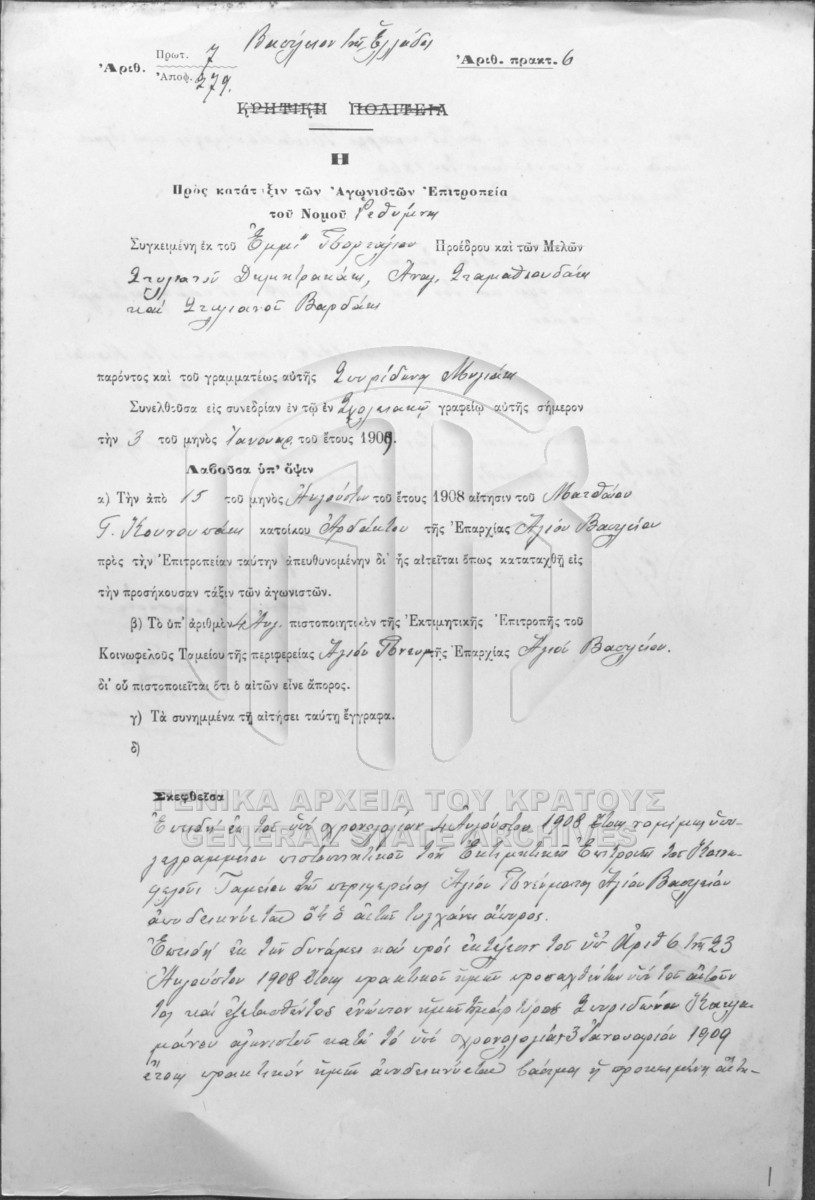 Βασίλειον τῆς Ἑλλάδος
Ἀριθ. Πρωτ. 7 Ἀριθ. πρακτ. 6
Ἀποφ. 279.
ΚΡΗΤΙΚΗ ΠΟΛΙΤΕΙΑ
Η
Πρὸς κατάταξιν τῶν Ἀγωνιστῶν Ἐπιτροπεία
τοῦ Νομοῦ Ρεθύμνης
Συγκειμένη ἐκ τοῦ Ἐμμ. Προέδρου καὶ τῶν Μελῶν
Στυλιανοῦ Δημητρακάκη, Ἀναγ. Σταμαθιουδάκη
καὶ Στυλιανοῦ Βαρδάκη
παρόντος καὶ τοῦ γραμματέως αὐτῆς Σπυρίδωνος
Συνελθοῦσα εἰς συνεδρίαν ἐν τῷ ἐν γραφείῳ αὐτῆς σήμερον
τὴν 3 τοῦ μηνὸς Ἰανουαρ. τοῦ ἔτους 1909.
Λαβοῦσα ὑπ' ὄψιν
α) Τὴν ἀπὸ 15 τοῦ μηνὸς Αὐγούστου τοῦ ἔτους 1908 αἴτησιν τοῦ Ματθαίου
Γ. Κουνουπάκη κατοίκου Ἀρδάκτου τῆς Ἐπαρχίας Ἁγίου Βασιλείου
πρὸς τὴν Ἐπιτροπείαν ταύτην ἀπευθυνομένην δι' ἧς αἰτεῖται ὅπως καταταχθῇ εἰς
τὴν προσήκουσαν τάξιν τῶν ἀγωνιστῶν.
β) Τὸ ὑπ' ἀριθμὸν 4 Αὐγ. πιστοποιητικὸν τῆς Ἐκτιμητικῆς Ἐπιτροπῆς τοῦ
Κοινωφελοῦς Ταμείου τῆς περιφερείας Ἁγίου Πνευμ. τῆς Ἐπαρχίας Ἁγίου Βασιλείου.
δι' οὗ πιστοποιεῖται ὅτι ὁ αἰτῶν εἶνε ἄπορος.
γ) Τὰ συνημμένα τῇ αἰτήσει ταύτῃ ἔγγραφα.
δ)
Σκεφθεῖσα
ΓΕΝΙΚΑ ΑΡΧΕΙΑ ΤΟΥ ΚΡΑΤΟΥΣ
GENERAL STATE ARCHIVES
Ἐπειδὴ ἐκ τοῦ ὑπὸ χρονολογίαν 4 Αὐγούστου 1908 ἔτους νομίμως ὑπο-
γεγραμμένου πιστοποιητικοῦ τῆς Ἐκτιμητικῆς Ἐπιτροπῆς τοῦ Κοινω-
φελοῦς Ταμείου τῆς περιφερείας Ἁγίου Πνεύματος Ἁγίου Βασιλείου
ἀποδεικνύεται ὅτι ὁ αἰτῶν τυγχάνει ἄπορος.
Ἐπειδὴ ἐκ τῶν δυνάμει καὶ πρὸς ἐκτέλεσιν τοῦ ὑπ' Ἀριθ 6 τῆς 23
Αὐγούστου 1908 ἔτους πρακτικοῦ ἡμῶν προσαχθέντων ὑπὸ τοῦ αἰτοῦν-
τος καὶ ἐξετασθέντος ἐνώπιον ἡμῶν μάρτυρος Σπυρίδωνος
ἀγωνιστοῦ κατὰ τὸ ὑπὸ χρονολογίαν 3 Ἰανουαρίου 1909
ἔτους πρακτικὸν ἡμῶν ἀποδεικνύεται βάσιμος ἡ προκειμένη αἴτη-
1